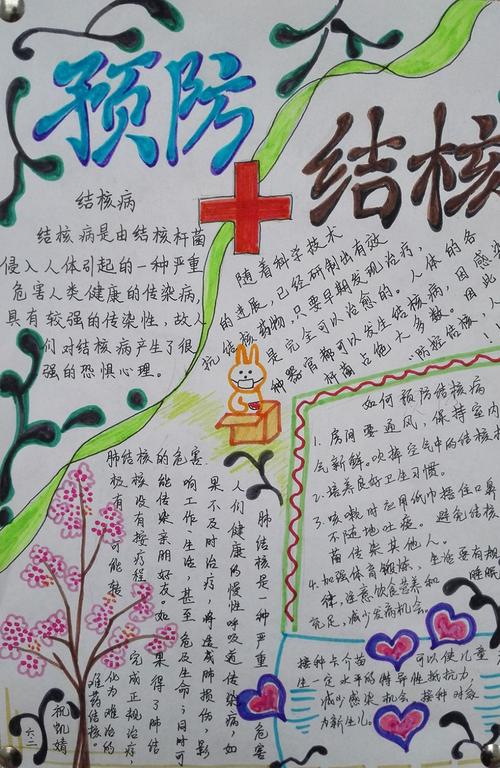 预防
结核
结核病
结核病是由结核杆菌
侵入人体引起的一种严重
危害人类健康的传染病,
具有较强的传染性,故人
们对结核病产生了很
强的恐惧心理。
随着科学技术
的进展,已经研制出有效
抗结核药物,只要早期发现治疗,
是完全可以治愈的。人体的各
种器官都可以发生结核病,因感染
杆菌占绝大多数。因此
防控结核
如何预防结核病
1.房间要通风,保持室内
气新鲜。吹掉空气中的结核
2.培养良好卫生习惯。
3.咳嗽时应用纸巾捂住口鼻
不随地吐痰。避免结核
菌传染其他人。
4.加强体育锻炼,生活要有规
律,注意饮食营养和睡眠
充足,减少发病机会。
接种卡介苗可以使儿童
生一定水平的特异性抵抗力,
减少感染机会,接种对象
为新生儿。
肺结核的危害
肺结核是一种严重危害
人们健康的慢性呼吸道传染病,如
果不及时治疗,将造成肺损伤,影
响工作、生活,甚至危及生命;同时可
能传染亲朋好友。如果得了肺结
核没有按疗程完成正规治疗,
极有可能转化为难治的
难药结核。
六.二
祝凯婧